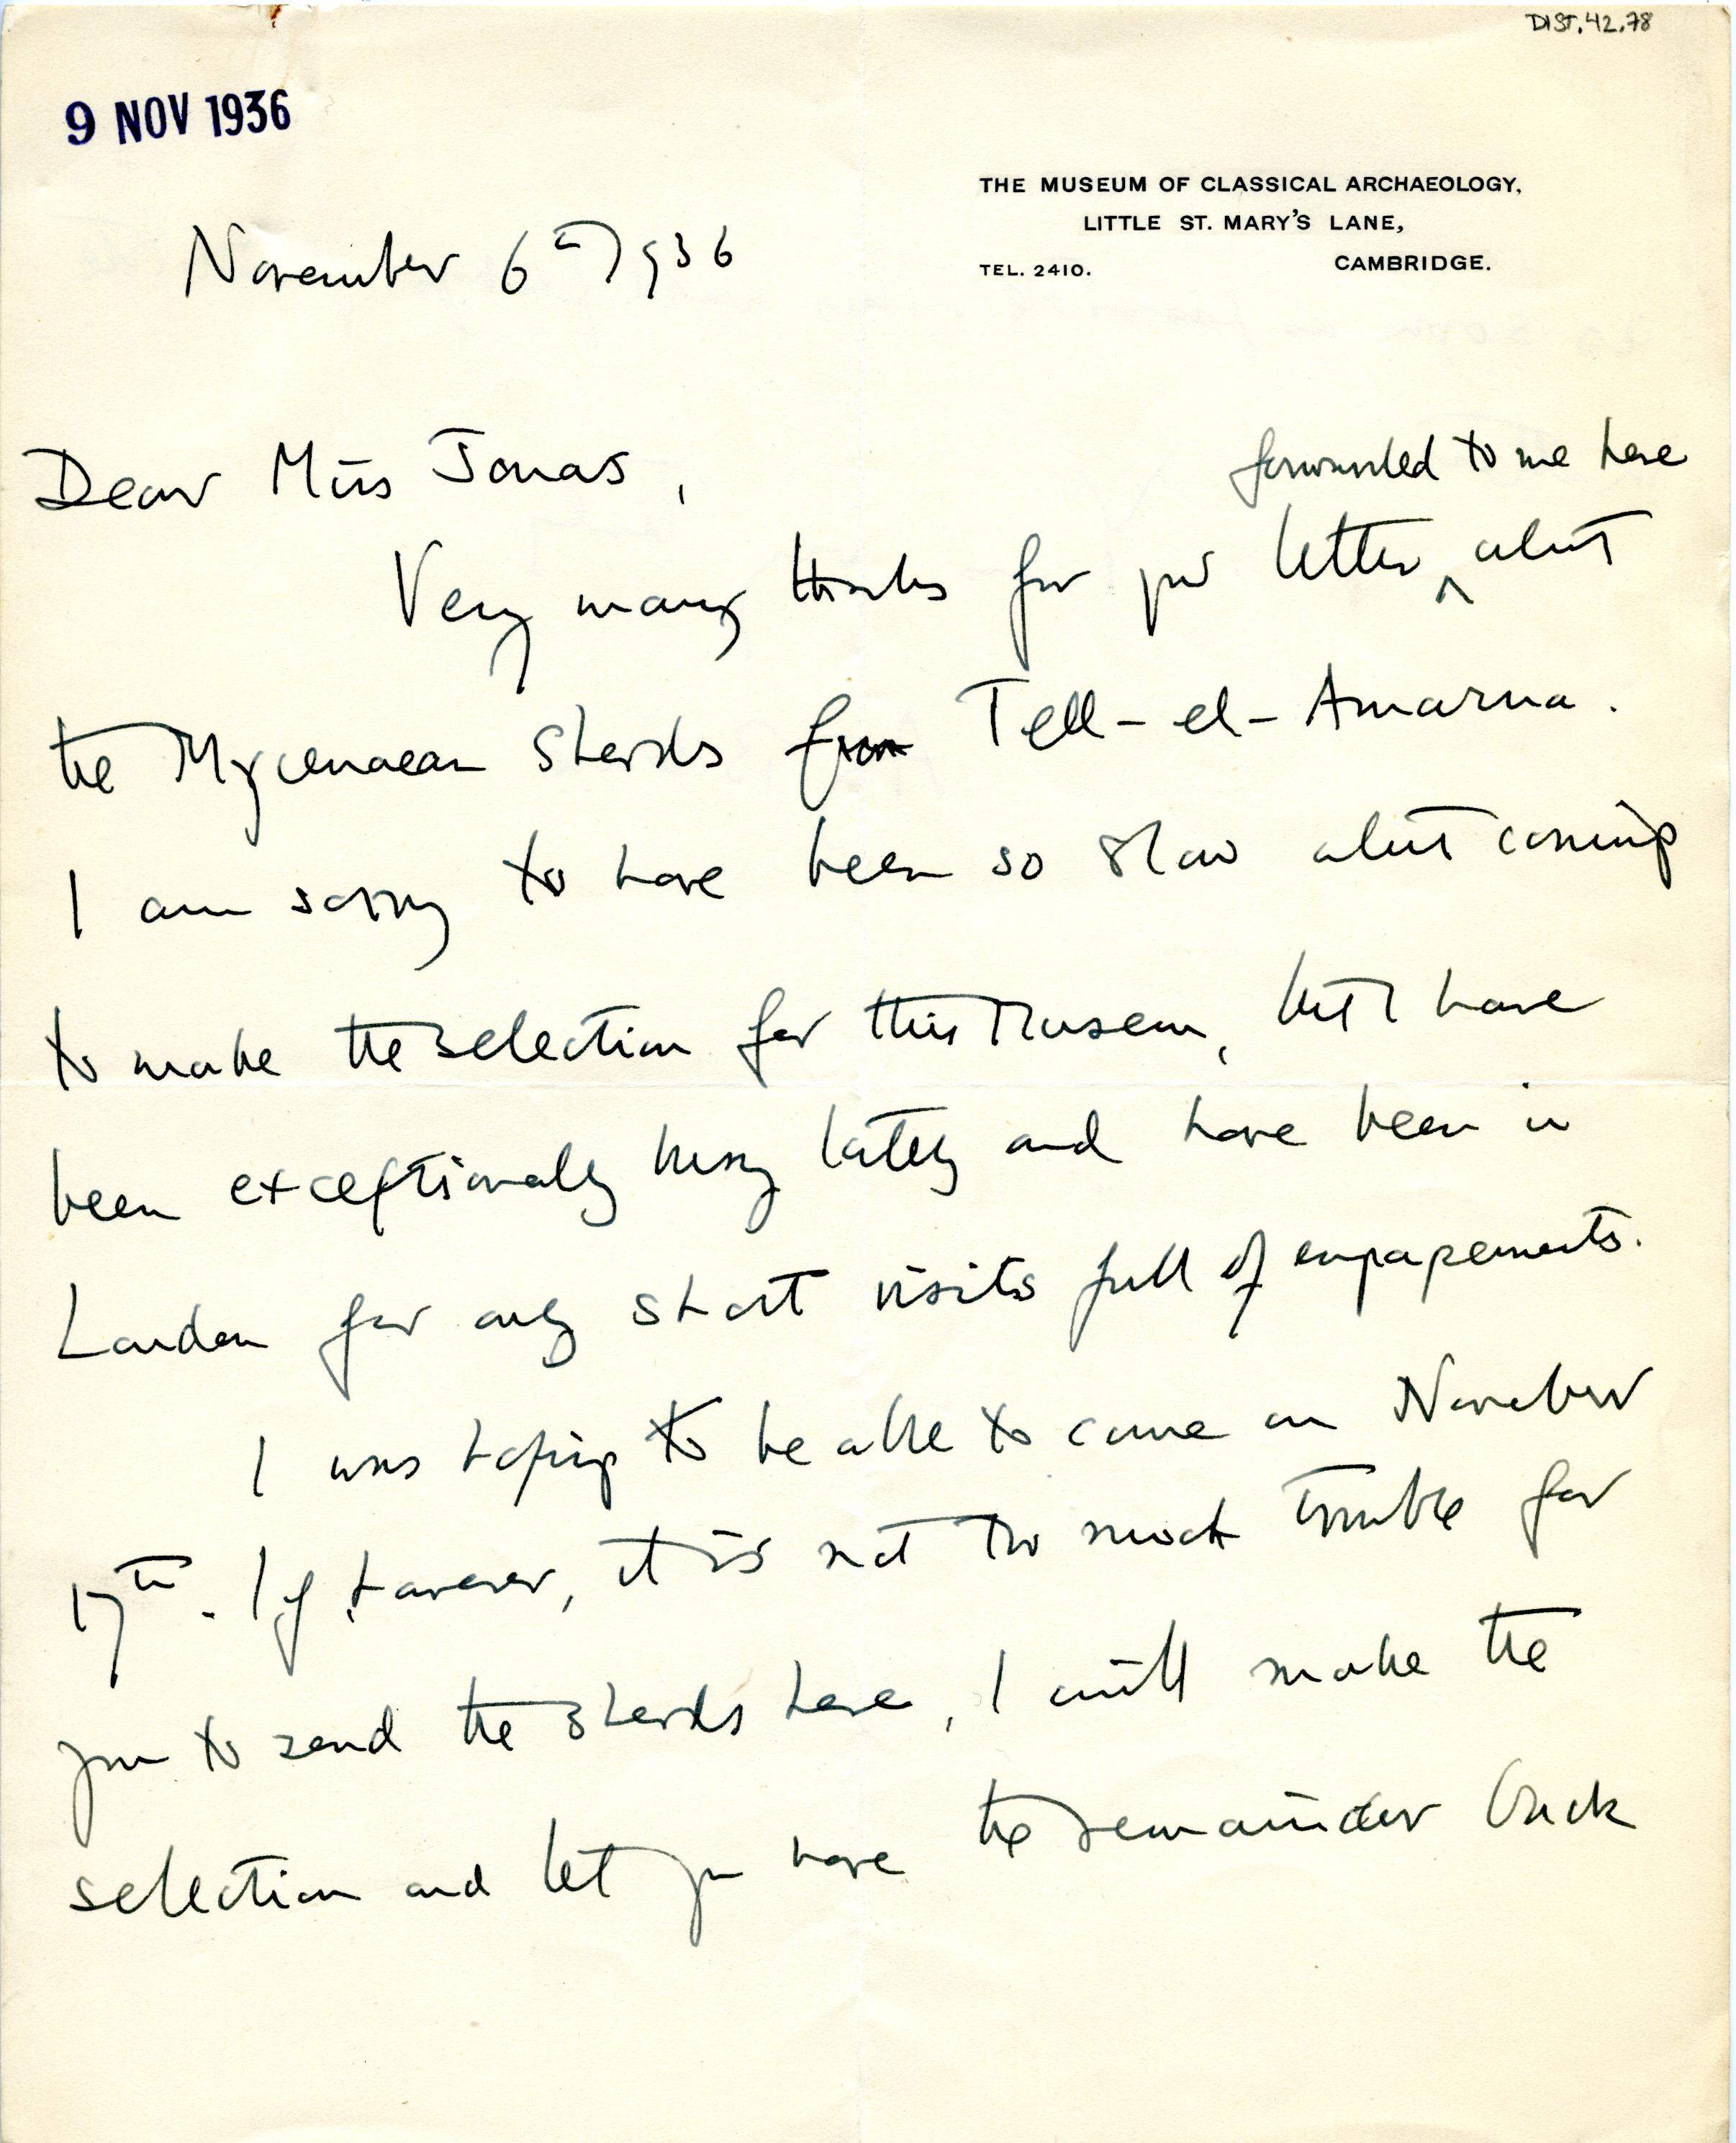 DIST.42.78
9 NOV 1936
THE MUSEUM OF CLASSICAL ARCHAEOLOGY,
LITTLE ST. MARY'S LANE,
TEL. 2410. CAMBRIDGE.
November 6th 1936
Dear Miss Jonas,
forwarded to me here
Very many thanks for your letter ^ about
the Mycenaean sherds from Tell-el-Amarna.
I am sorry to have been so slow about coming
to make the selection for this Museum, but I have
been exceptionally busy lately and have been in
London for only short visits full of engagements.
I was hoping to be able to come on November
17th. If, however, it is not too much trouble for
you to send the sherds here, I will make the
selection and let you have the remainder back